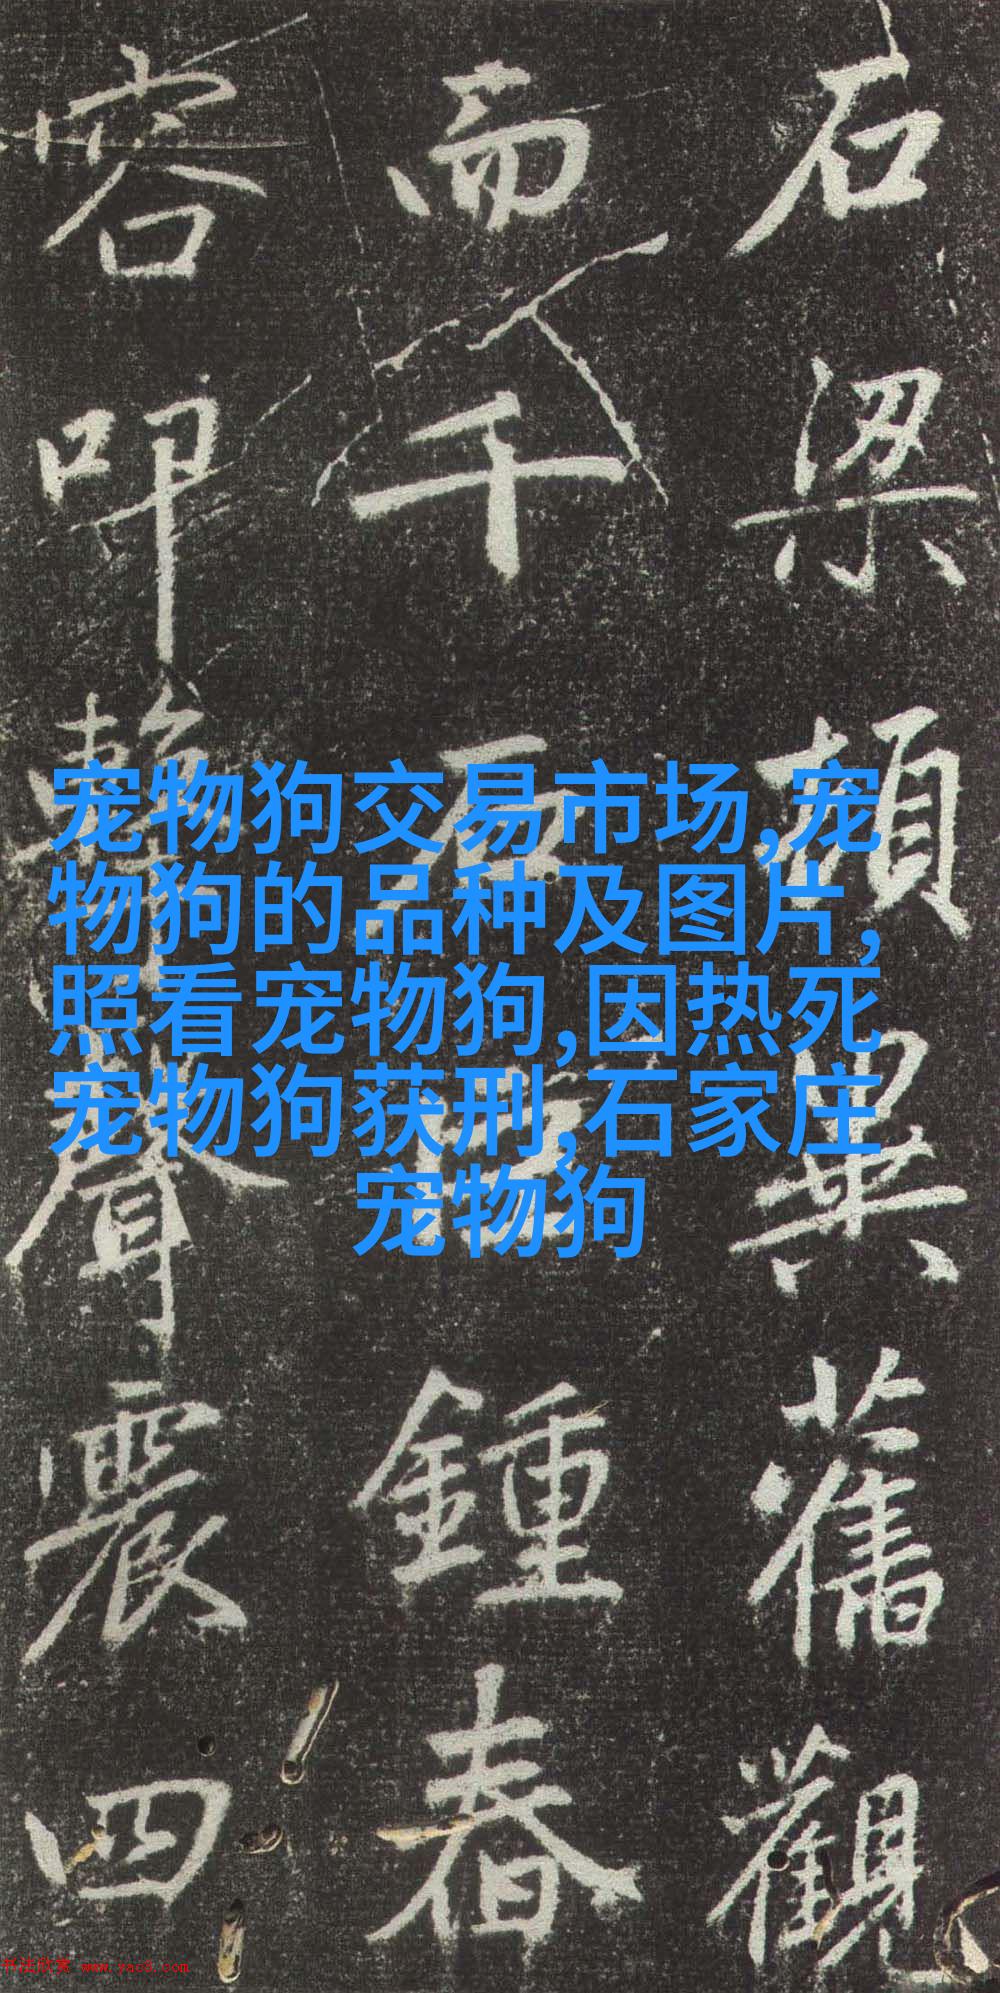 石梁頓異舊觀
而千石鍾春
容叩擊聲震四
宠物狗交易市场,宠
物狗的品种及图片,
照看宠物狗,因热死
宠物狗获刑,石家庄
宠物狗
书法欣赏 www.yac8.com